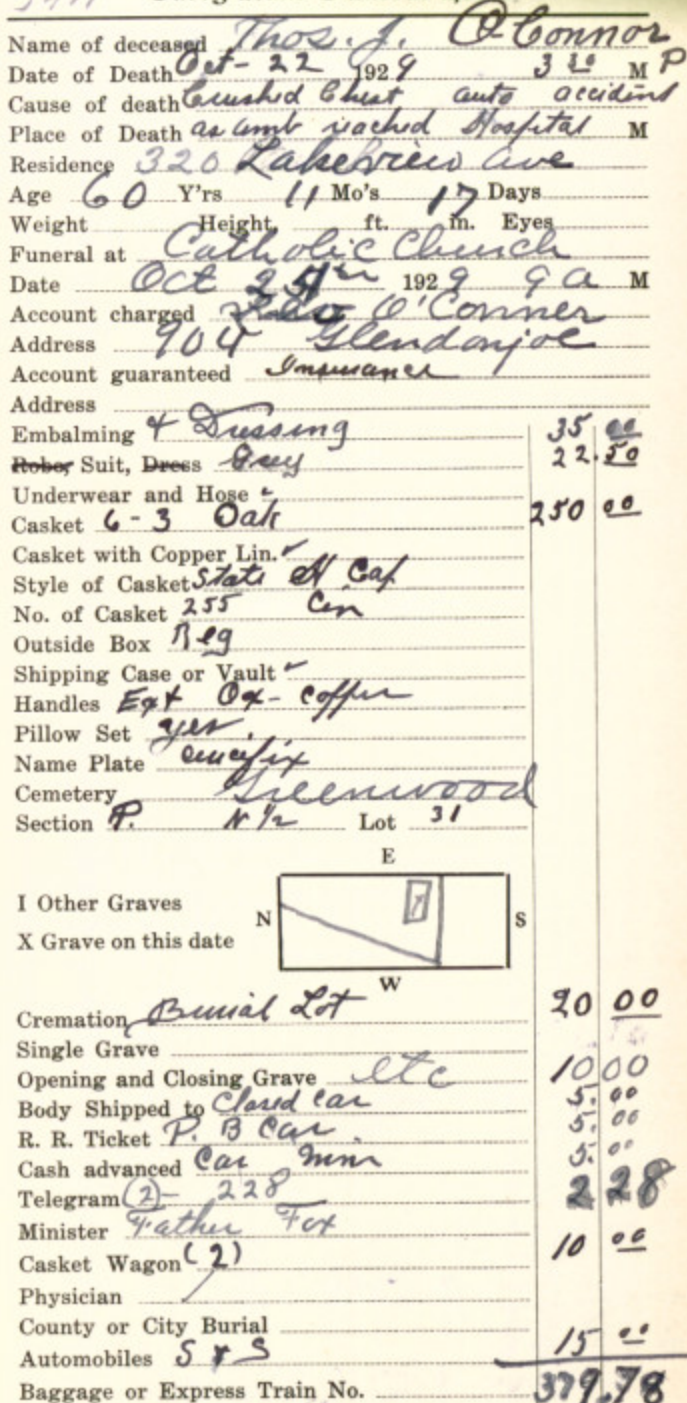 Name of deceased Thos. J. O'Connor
Date of Death Oct-22 1929 3 30 M P
Cause of death Crushed Chest auto accident
Place of Death as amb reached Hospital M
Residence 320 Lakeview ave
Age 60 Y'rs 11 Mo's 17 Days
Weight Height, ft. in. Eyes
Funeral at Catholic Church
Date Oct 25 1929 9 a M
Account charged O'Conner
Address 904
Account guaranteed Insurance
Address
Embalming & Dressing 35 00
Robe, Suit, Dress Grey 22.50
Underwear and Hose
Casket 6-3 Oak 250 00
Casket with Copper Lin.
Style of Casket State
No. of Casket 255 Cin
Outside Box Reg
Shipping Case or Vault
Handles Ext Ox-copper
Pillow Set yes
Name Plate crucifix
Cemetery Greenwood
Section P. N 1/2 Lot 31
E
I Other Graves
N S
X Grave on this date
W
Cremation Burial Lot 20 00
Single Grave
Opening and Closing Grave etc 10 00
Body Shipped to Closed car 5.00
R. R. Ticket P. B Car 5.00
Cash advanced Car 5.00
Telegram (2)- 228 2 28
Minister Father Fox
Casket Wagon (2) 10 00
Physician
County or City Burial
Automobiles S & S 15 00
Baggage or Express Train No. 379.78